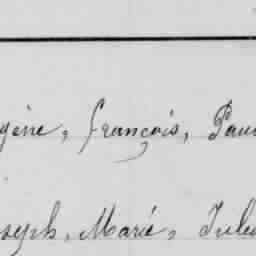 gène, françois, Pau
seph, Marie, Jules